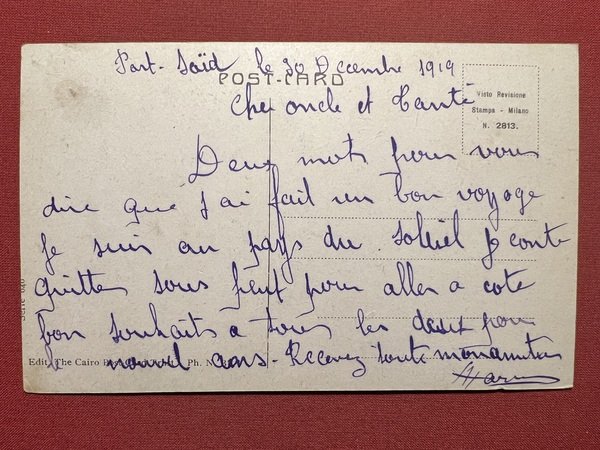 Port-Saïd le 30 Décembre 1919
POST-CARD
Cher oncle et Tante
Visto Revisione
Stampa - Milano
N. 2813.
Deux mots pour vous
dire que j'ai fait un bon voyage
Je suis au pays du Solliel Je conte
quitter sous peut pour aller a cote
bon souhaits a tous les deux pour
le nouvel ans - Recevez toute
Edit. The Cairo Ph. N.
Serie